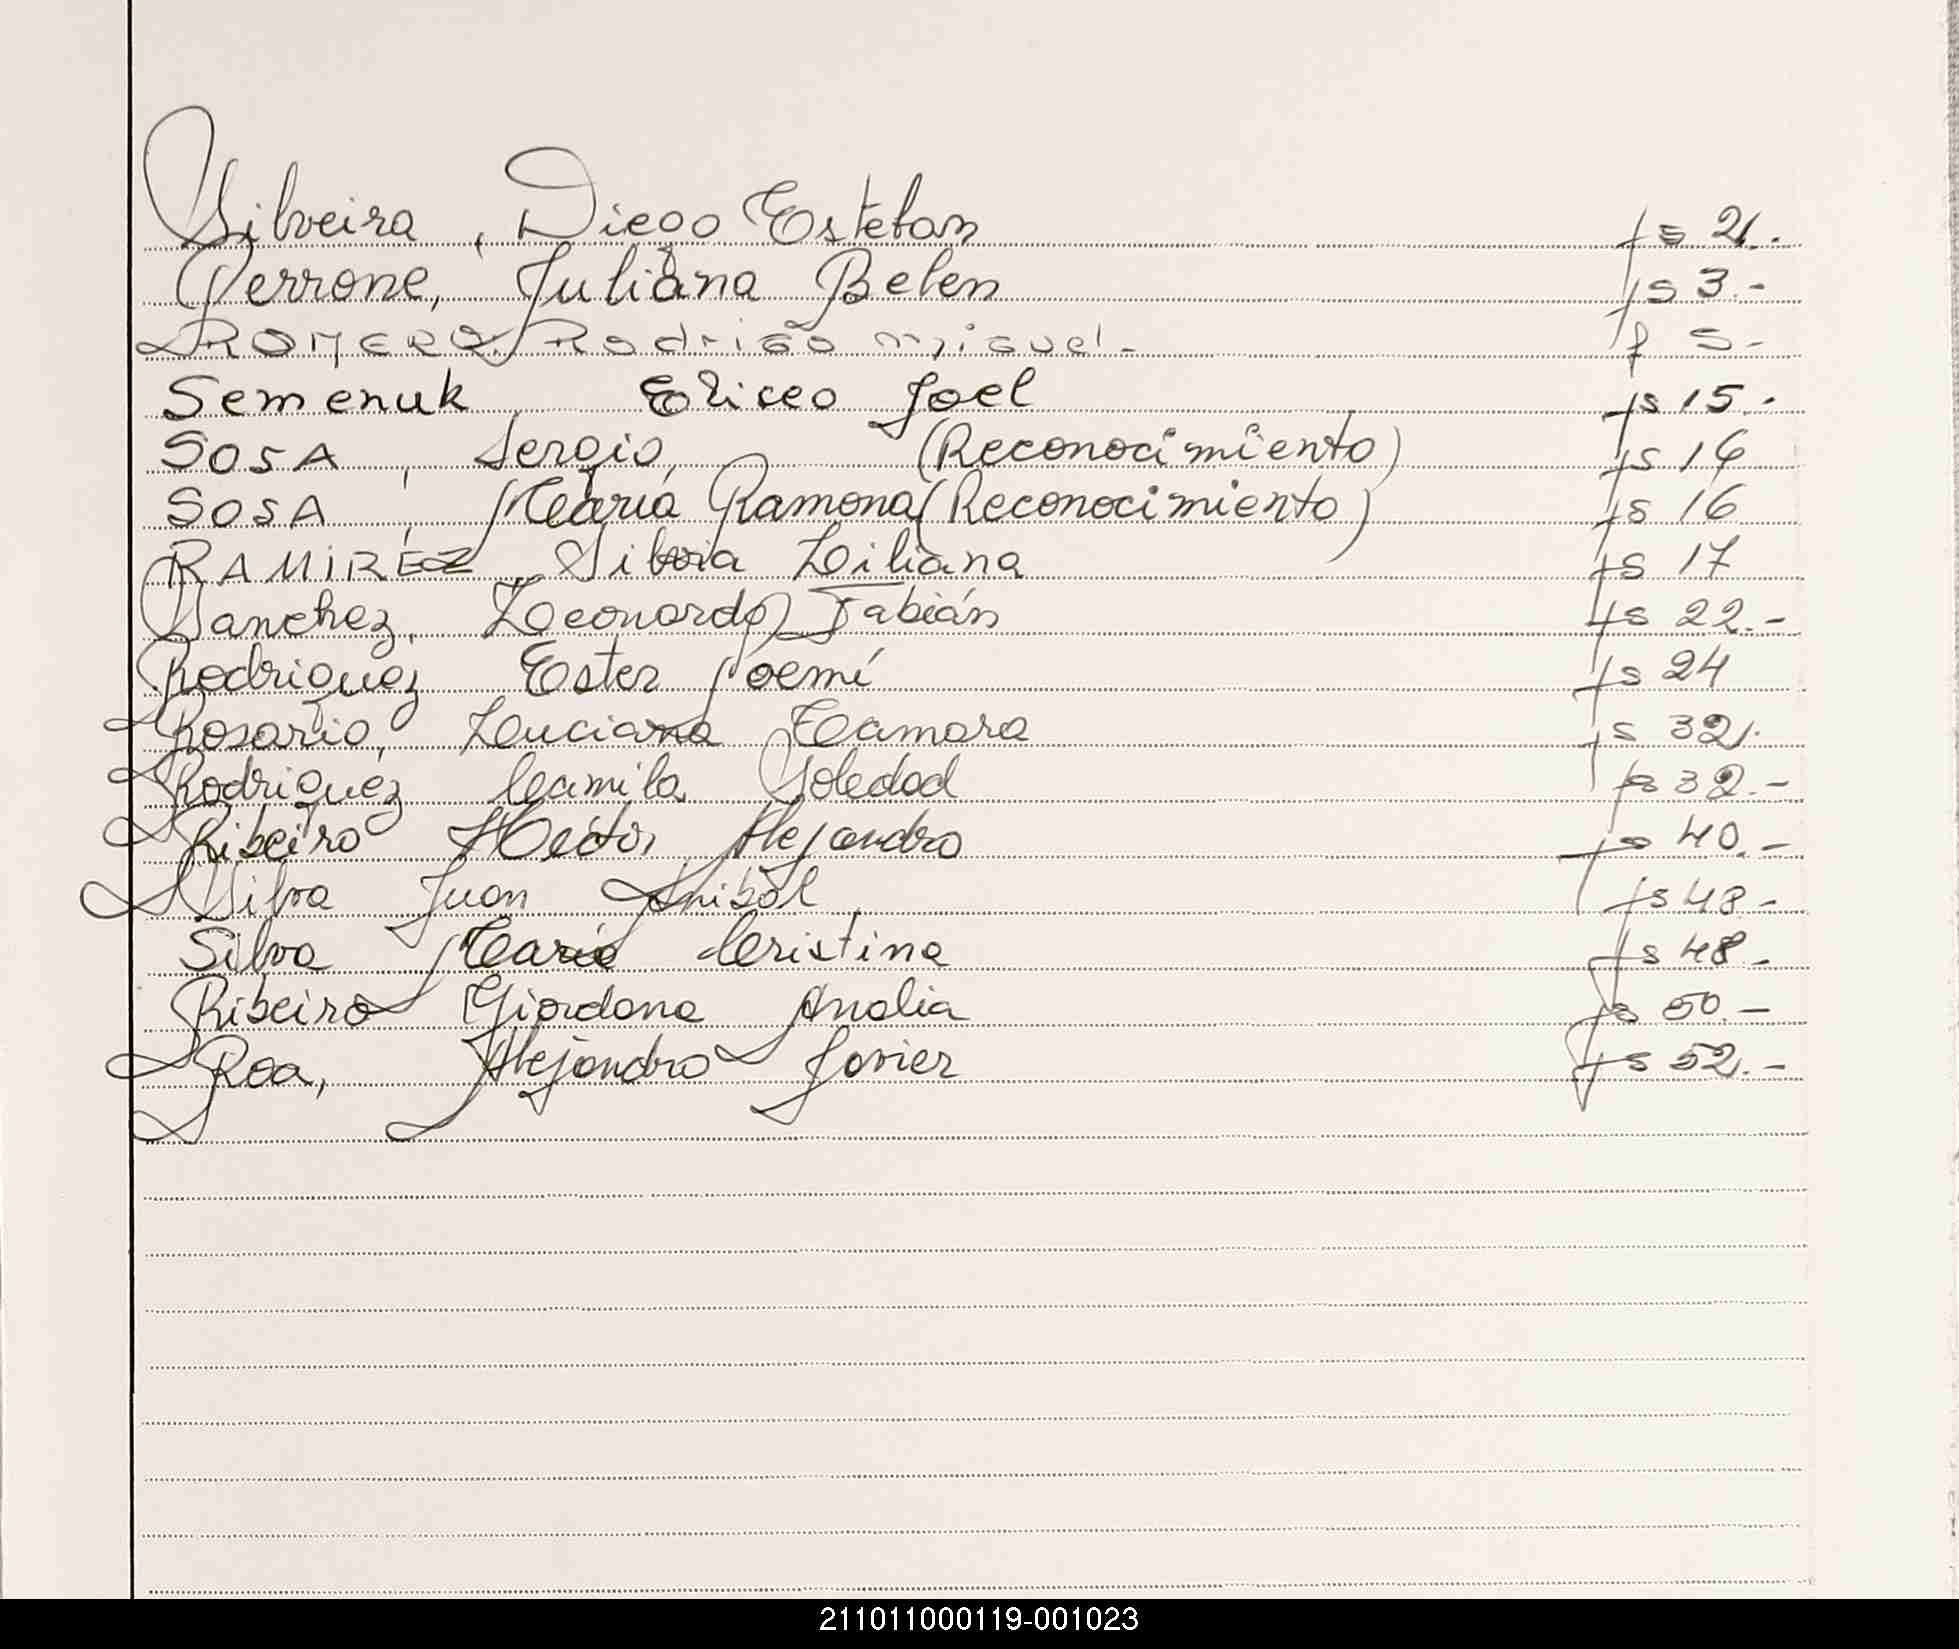 Silveira, Diego Esteban fs 2.
Perrone, Juliana Belen fs 3.-
ROMERO Rodrigo miguel.- f 5-
Semenuk, Eliceo Joel fs 15.-
SOSA, Sergio, (Reconocimiento) fs 16
SOSA, Maria Ramona (Reconocimiento) fs 16
RAMIREZ, Silvia Liliana fs 17
Sanchez, Leonardo Fabián fs 22.-
Rodriguez Ester Noemí fs 24
Rosario, Luciana Tamara fs 32.
Rodriguez Camila Soledad fs 32.-
Ribeiro Héctor Alejandro fs 40.-
Silva Juan Anibal fs 48-
Silva Maria Cristina fs 48-
Ribeiro Giordana Analia fs 50.-
Roa, Alejandro Javier fs 52.-
211011000119-001023